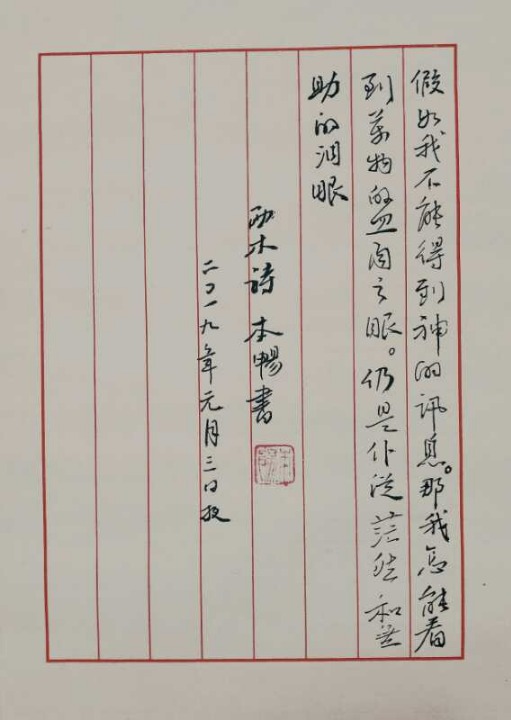 假如我不能得到神的讯息。那我怎能看
到万物的血肉之眼。仍是仆從茫然和無
助的泪眼
西木诗 本暢書
二〇一九年元月三日夜